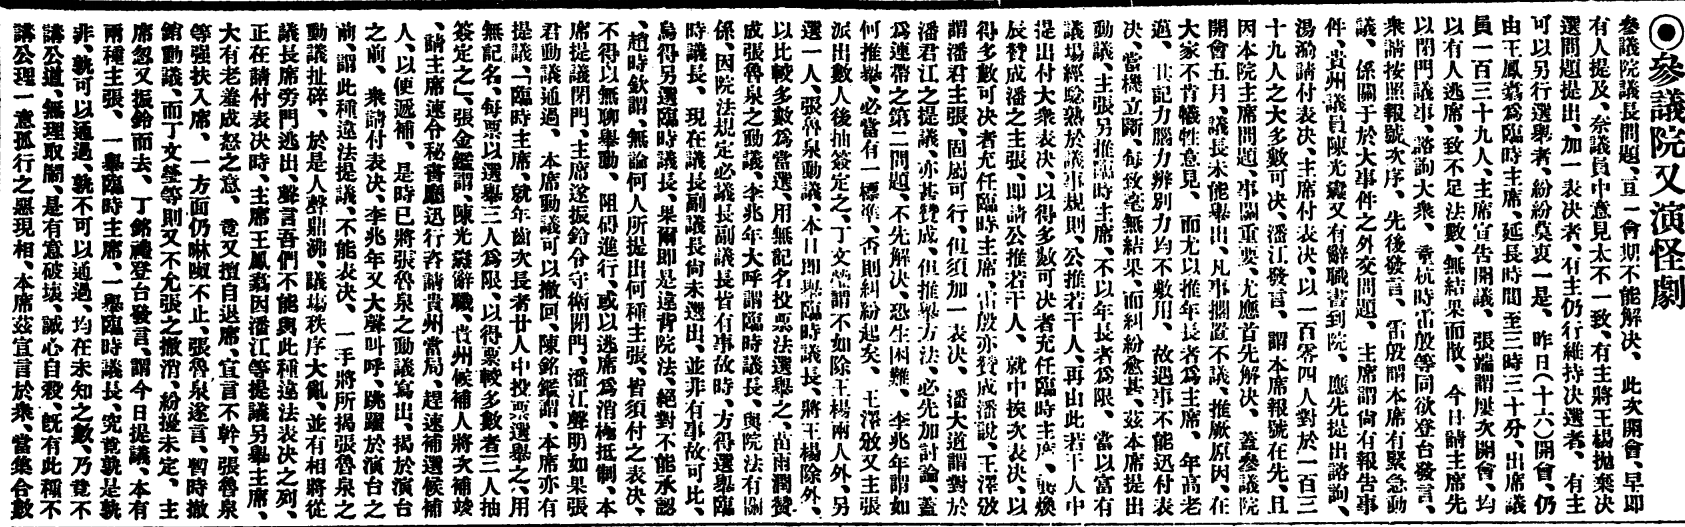 ◉參議院又演怪劇
參議院議長問題、亘一會期不能解決、此次開會、早卽
有人提及、奈議員中意見太不一致、有主將王楊拋棄決
選問題提出、加一表決者、有主仍行維持決選者、有主
可以另行選舉者、紛紛莫衷一是、昨日(十六)開會、仍
由王鳳翥爲臨時主席、延長時間至三時三十分、出席議
員一百三十九人、主席宣告開議、張端謂屢次開會、均
以有人逃席、致不足法數、無結果而散、今日請主席先
以閉門議事、諮詢大衆、童杭時雷殷等同欲登台發言、
衆請按照報號次序、先後發言、雷殷謂本席有緊急動
議、係關于於大事件之外交問題、主席謂尙有報告事
件、貴州議員陳光燾又有辭職書到院、應先提出諮詢、
湯漪請付表決、主席付表決、以一百零四人對於一百三
十九人之大多數可決、潘江發言、謂本席報號在先、且
因本院主席問題、事關重要、尤應首先解決、蓋參議院
開會五月、議長未能舉出、凡事擱置不議、推厥原因、在
大家不肯犧牲意見、而尤以推年長者爲主席、年高老
邁、其記力腦力辨別力均不敷用、故遇事不能迅付表
決、當機立斷、每致毫無結果、而糾紛愈甚、茲本席提出
動議、主張另推臨時主席、不以年長者爲限、當以富有
議場經驗熟於議事規則、公推若干人、再由此若干人中
提出付大衆表決、以得多數可決者充任臨時主席、龔煥
辰贊成潘之主張、卽請公推若干人、就中挨次表決、以
得多數可決者充任臨時主席、雷殷亦贊成潘說、王澤攽
謂潘君主張、固屬可行、但須加一表決、潘大道謂對於
潘君江之提議、亦甚贊成、但推舉方法、必先加討論、蓋
爲連帶之第二問題、不先解決、恐生困難、李兆年謂如
何推舉、必當有一標準、否則糾紛起矣、王澤攽又主張
派出數人後抽簽定之、丁文瑩謂不如除王楊兩人外、另
選一人、張魯泉動議、本日卽舉臨時議長、將王楊除外、
以比較多數爲當選、用無記名投票法選舉之、苗雨潤贊
成張魯泉之動議、李兆年大呼謂臨時議長、與院法有關
係、因院法規定必議長副議長皆有事故時、方得選舉臨
時議長、現在議長副議長尙未選出、並非有事故可比、
烏得另選臨時議長、果爾卽是違背院法、絕對不能承認
、趙時欽謂、無論何人所提出何種主張、皆須付之表決、
不得以無聊舉動、阻碍進行、或以逃席爲消極抵制、本
席提議閉門、主席遂振鈴令守衛閉門、潘江聲明如果張
君動議通過、本席動議可以撤回、陳銘鑑謂、本席亦有
提議「臨時主席、就年齒次長者廿人中投票選舉之、用
無記名、每票以選舉三人爲限、以得票較多數者三人抽
簽定之」、張金鑑謂、陳光燾辭職、貴州候補人將次補竣
、請主席速令秘書廳迅行咨請貴州當局、趕速補選候補
人、以便遞補、是時已將張魯泉之動議寫出、揭於演台
之前、衆請付表決、李兆年又大聲叫呼、跳躍於演台之
前、謂此種違法提議、不能表決、一手將所揭張魯泉之
動議扯碎、於是人聲鼎沸、議場秩序大亂、並有相將從
議長席旁門逃出、聲言吾們不能與此種違法表決之列、
正在請付表決時、主席王鳳翥因潘江等提議另舉主席、
大有老羞成怒之意、竟又擅自退席、宣言不幹、張魯泉
等强扶入席、一方面仍啉呶不止、張魯泉遂言、暫時撤
銷動議、而丁文瑩等則又不允張之撤消、紛擾未定、主
席忽又振鈴而去、丁銘禮登台發言、謂今日提議、本有
兩種主張、一舉臨時主席、一舉臨時議長、究竟孰是孰
非、孰可以通過、孰不可以通過、均在未知之數、乃竟不
講公道、無理取鬧、是有意破壞、誠心自殺、旣有此種不
講公理一意孤行之惡現相、本席茲宣言於衆、當集合數